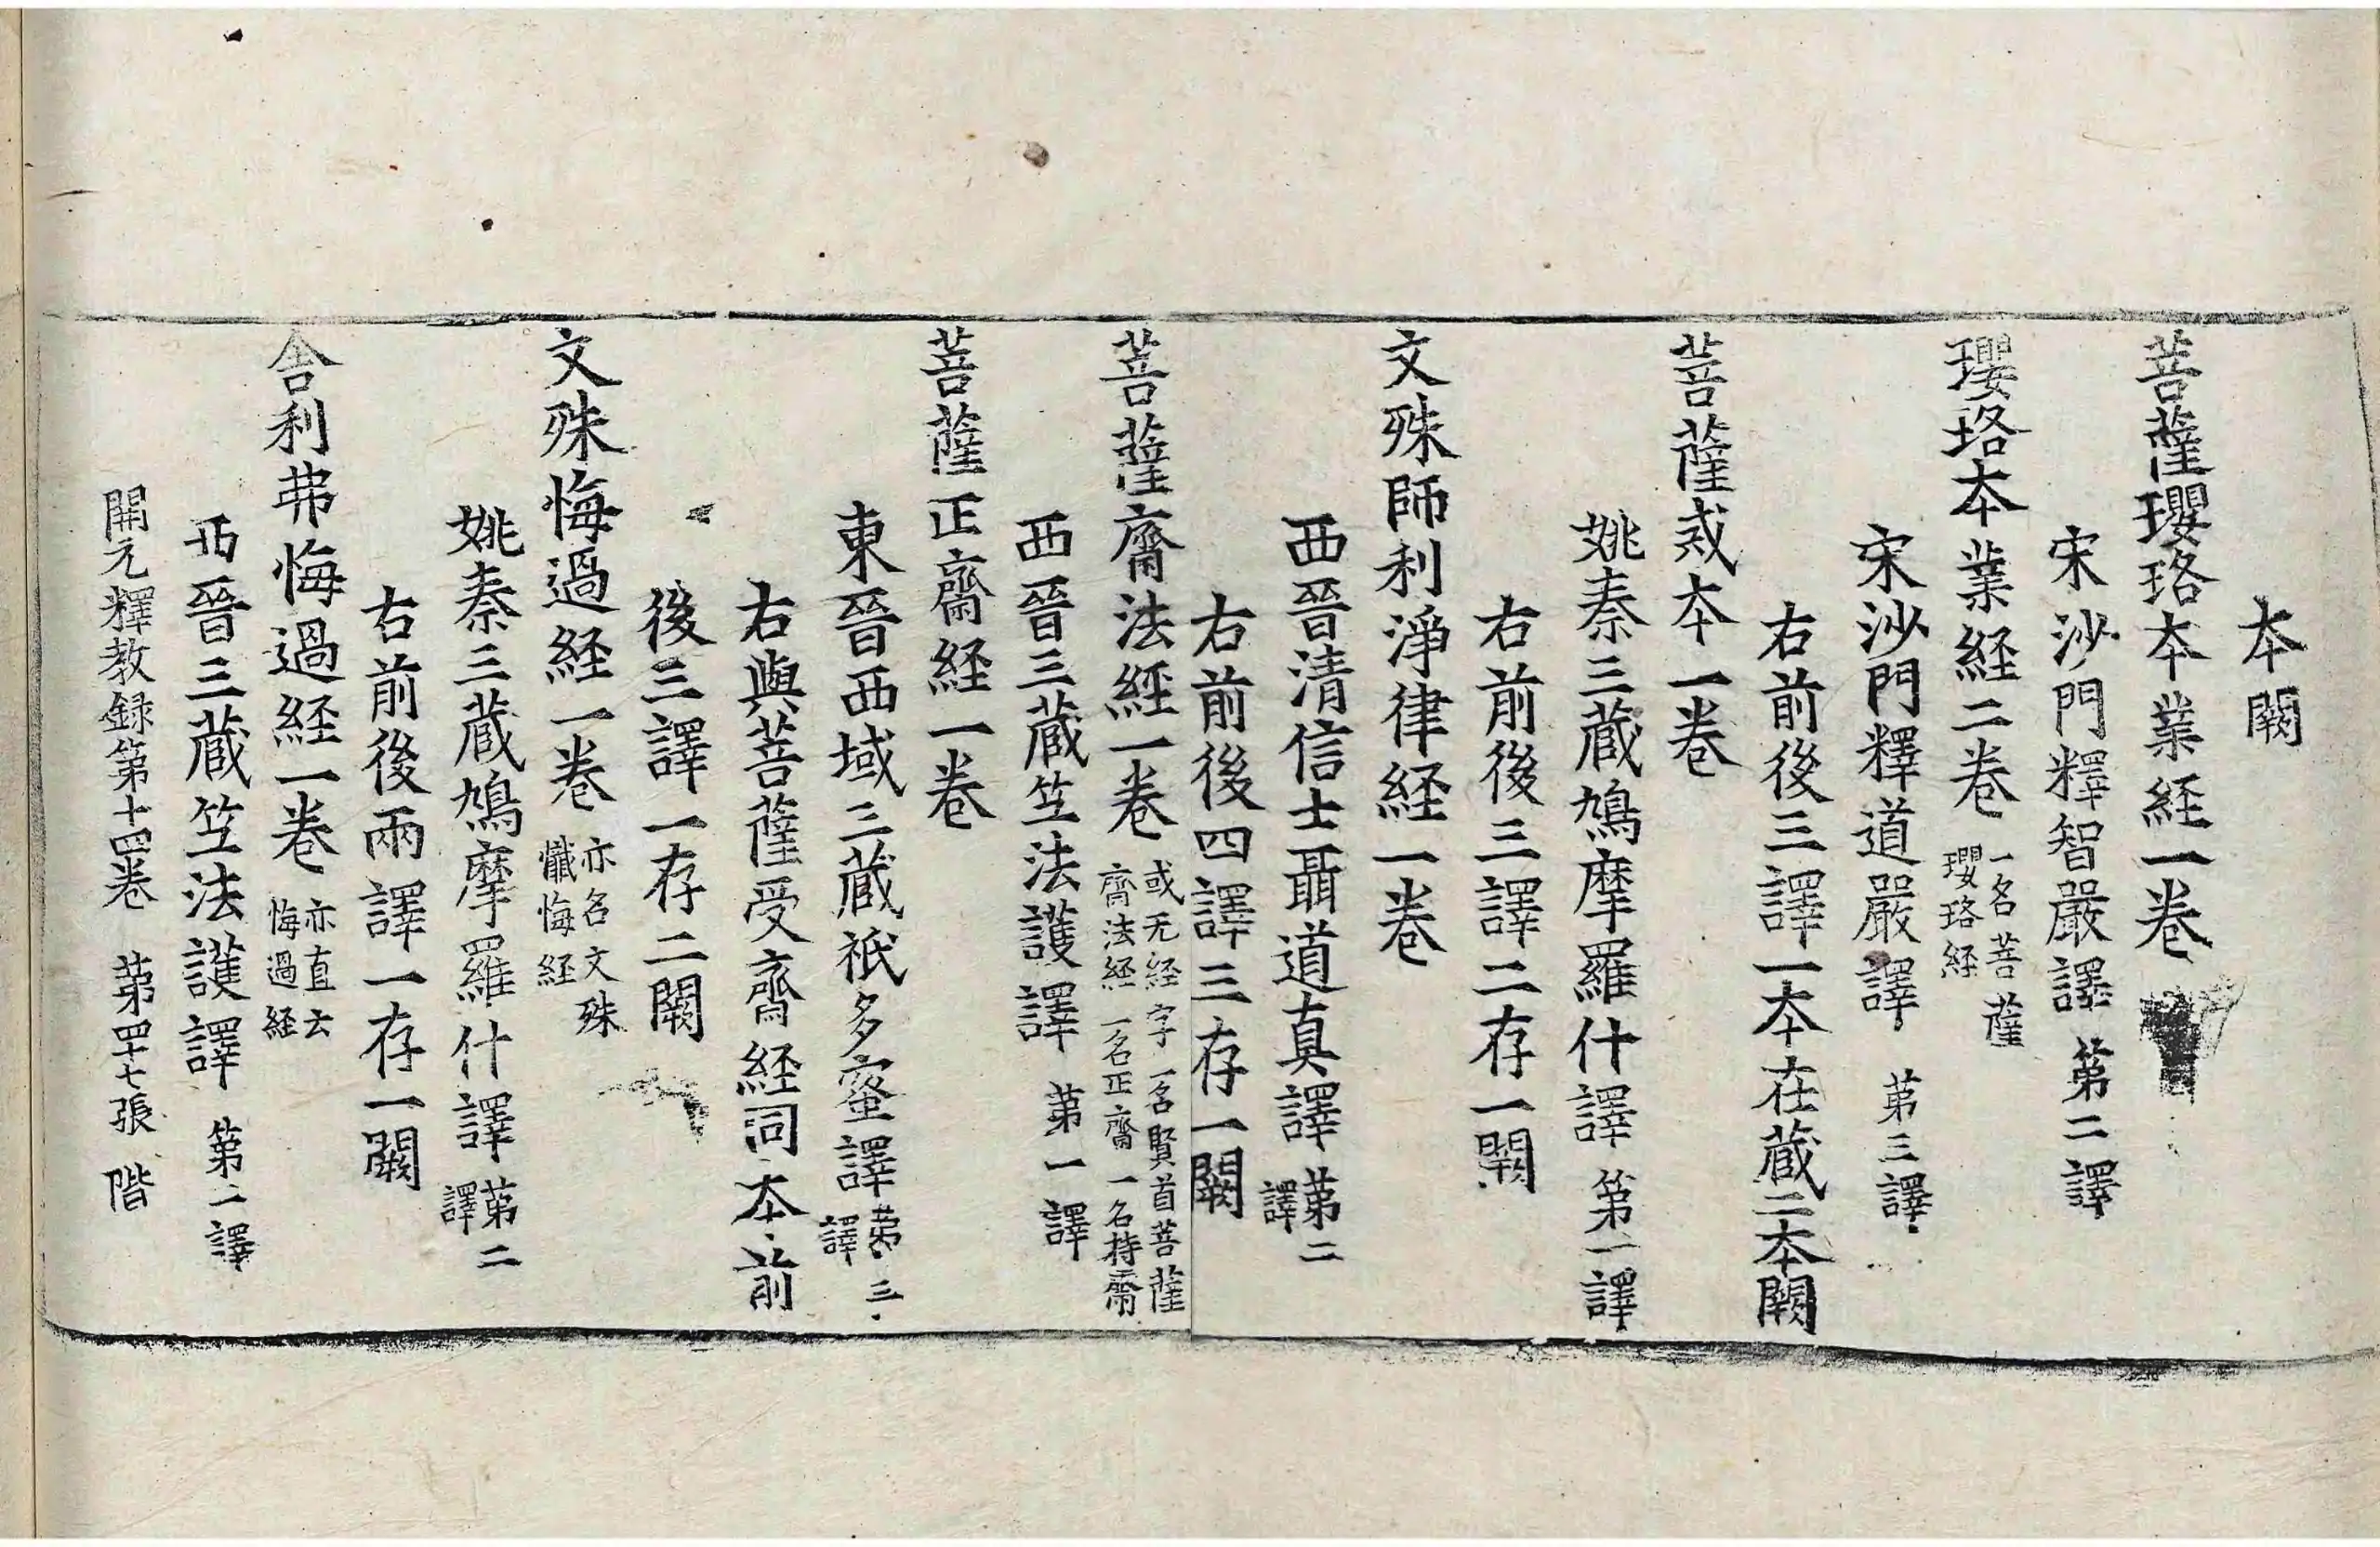 本闕
菩薩瓔珞本業経一卷
宋沙門釋智嚴譯 第二譯
瓔珞本業経二卷 一名菩薩瓔珞経
宋沙門釋道嚴譯 苐三譯
右前後三譯一本在蔵二本闕
菩薩戒本一卷
姚秦三蔵鳩摩羅什譯 第一譯
右前後三譯二存一闕
文殊師利淨律経一卷
西晉清信士聶道真譯 苐二譯
右前後四譯三存一闕
菩薩齋法經一卷 或无経字一名賢首菩薩齋法経一名正齋一名持齋
西晉三蔵竺法護譯 苐一譯
菩薩正齋経一卷
東晉西域三蔵祇多蜜譯 苐三譯
右與菩薩受齋経同本前
後三譯一存二闕
文殊悔過経一卷 亦名文殊懺悔経
姚秦三蔵鳩摩羅什譯 苐二譯
右前後兩譯一存一闕
舎利弗悔過経一卷 亦直云悔過経
西晉三蔵竺法護譯 第二譯
開元釋教録第十四卷 苐四十七張 階